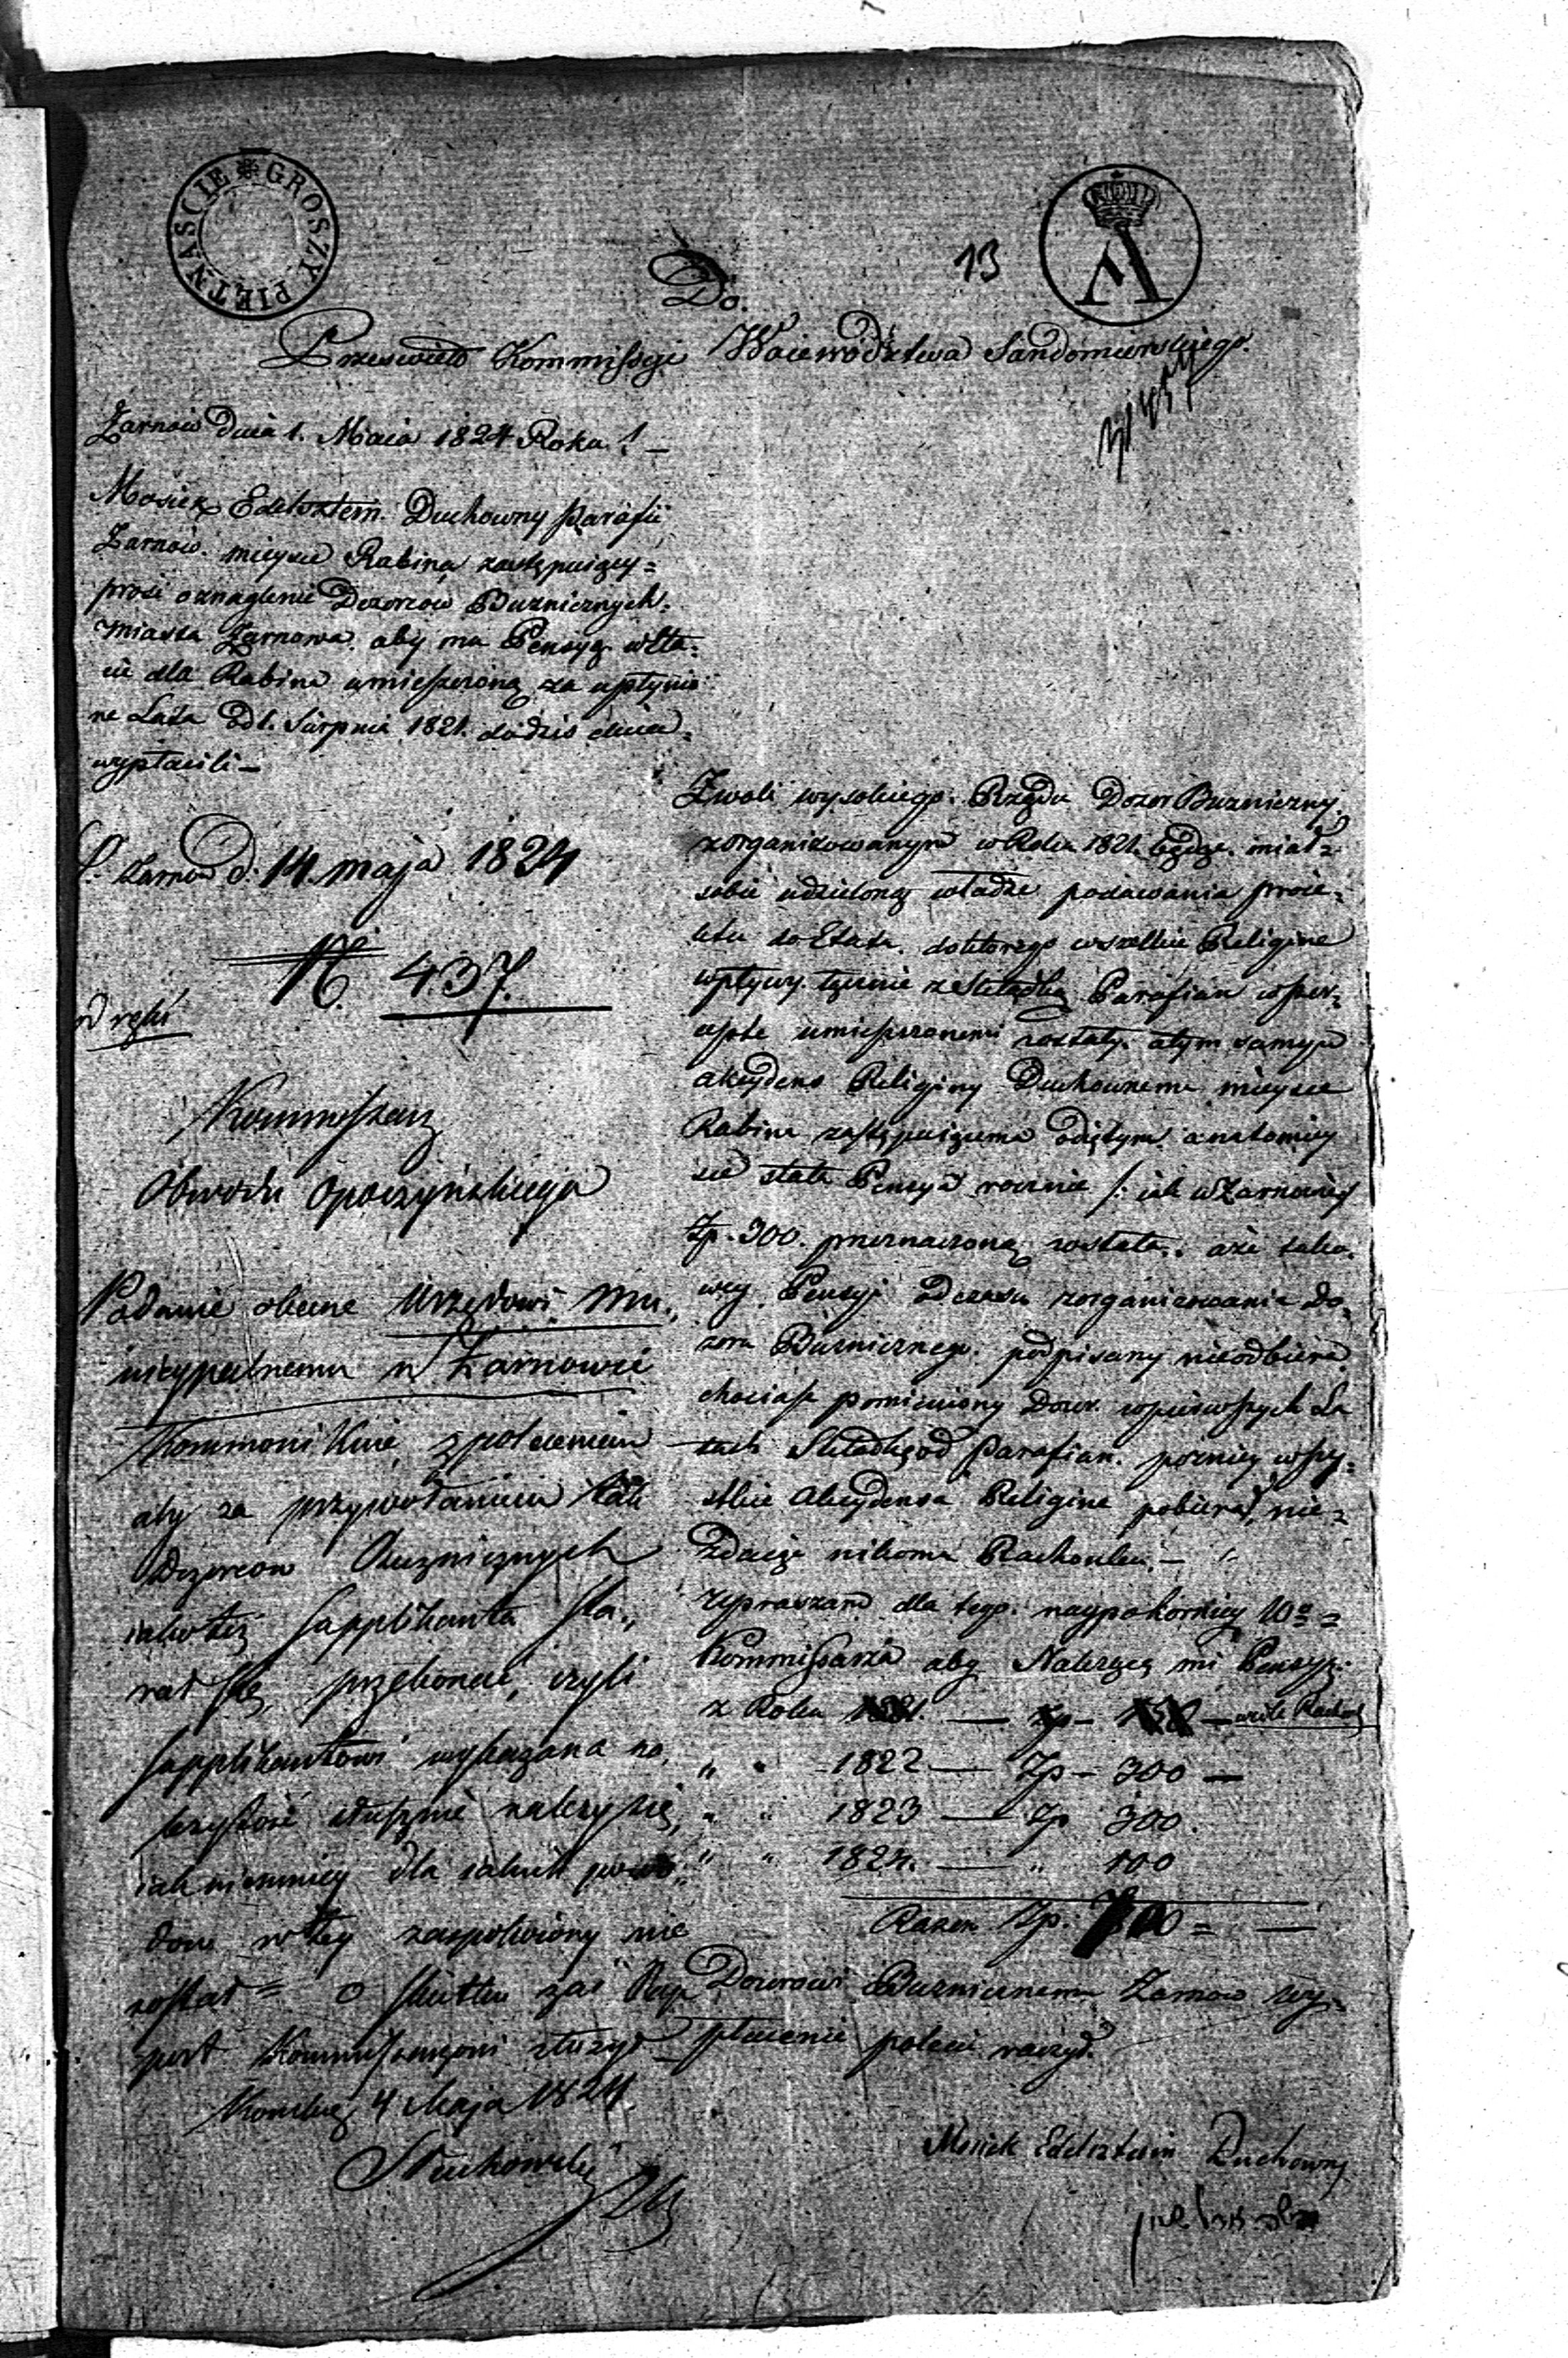 GROSZY PIĘTNAŚCIE
13
Do.
Prześwietn Kommissyi Woiewództwa Sandomierskiego.
Żarnów dnia 1. Maia 1824 Roku
Mosiek Edelsztein Duchowny Parafii
Żarnów mieysce Rabina zastępuiący=
prosi o znaglenie Dozorców Buzniczných
miasta Żarnowa aby mu Pensyą w Eta=
cie dla Rabina umieszczoną za upłynio
ne Lata od 1. Sierpnia 1821. do dziś dnia
wypłacili —
Żarnów d: 14 maja 1824
No 437.
Kommissarz
Obwodu Opoczyńskiego
Podanie obecne Urzędowi Mu,
nicypalnemu w Żarnowie
Kommonikuie z poleceniem
aby za przywołaniem tak
Dozorców Buznicznych
iakoteż Supplikanta sta,
rał się przekonać, czyli
Supplikantowi wykazana na,
leżytość słusznie należy się,
iak niemniey dla iakich powo,
dow w tey zaspokoiony nie
został = o skutku zaś Rap
port Kommissarzowi złożyć
Końskie 4 Maja 1824
Z woli wysokiego Rządu Dozor Buzniczny
zorganizowanym w Roku 1821. będąc miał
sobie udzieloną władze podawania proie=
ktu do Etatu do którego wszelkie Religine
wpływy łącznie ze składką Parafian w per=
cepte umieszczonemi zostały. a tym samym
akcydens Religiny Duchownemu mieysce
Rabina zastępuiącemu odiętym a natomiey
sce stała Pensya rocznie /: iak w Żarnowie
Zp. 300. przeznaczoną została. aże tako=
wey Pensyi od czasu zorganizowania Do=
zoru Buznicznego podpisany nieodbiera
chociasz pomieniony Dozor w pierwszych La
tach Składkę od Parafian. pozniey wszy=
stkie Akcydensa Religine pobierał, nie=
zdaiąc nikomu Rachunku —
Upraszam dla tego naypokorniey Wo=
Kommissarza aby Należącą mi Pensyą:
z Roku 1821. — Zp —
" " 1822 — Zp — 300 —
" " 1823 — Zp 300.
" " 1824. — " 100
Razem Zp. 700 = —
Dozorowi Buznicznemu Żarnow wy=
płacenie polecić raczył.
Mosiek Edelsztein Duchowny